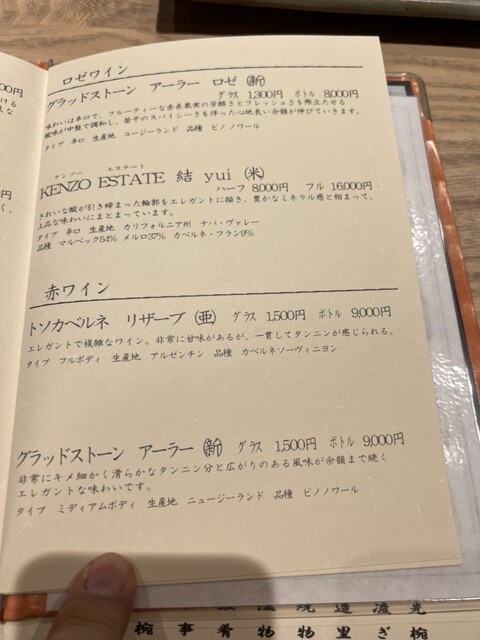 ロゼワイン
グラッドストーン アーラー ロゼ ㊟新
グラス 1,300円 ボトル 8,000円
味わいは辛口で、フルーティーな赤系果実の芳醇さとフレッシュさを際立たせる
酸味が中盤で調和し、若干のスパイシーさを伴った心地良い余韻が伸びていきます。
タイプ 辛口 生産地 ニュージーランド 品種 ピノノワール
ケンゾー エステート
KENZO ESTATE 結 yui (米)
ハーフ 8,000円 フル 16,000円
きれいな酸が引き締まった輪郭をエレガントに描き、豊かなミネラル感と相まって、
上品な味わいにまとまっています。
タイプ 辛口 生産地 カリフォルニア州 ナパ・ヴァレー
品種 マルベック54% メルロ37% カベルネ・フラン9%
赤ワイン
トソカベルネ リザーブ (亜) グラス 1,500円 ボトル 9,000円
エレガントで複雑なワイン。非常に甘味があるが、一貫してタンニンが感じられる。
タイプ フルボディ 生産地 アルゼンチン 品種 カベルネソーヴィニヨン
グラッドストーン アーラー (新) グラス 1,500円 ボトル 9,000円
非常にキメ細かく滑らかなタンニン分と広がりのある風味が余韻まで続く
エレガントな味わいです。
タイプ ミディアムボディ 生産地 ニュージーランド 品種 ピノノワール
椀 事 肴 物 物 里 ぎ 椀